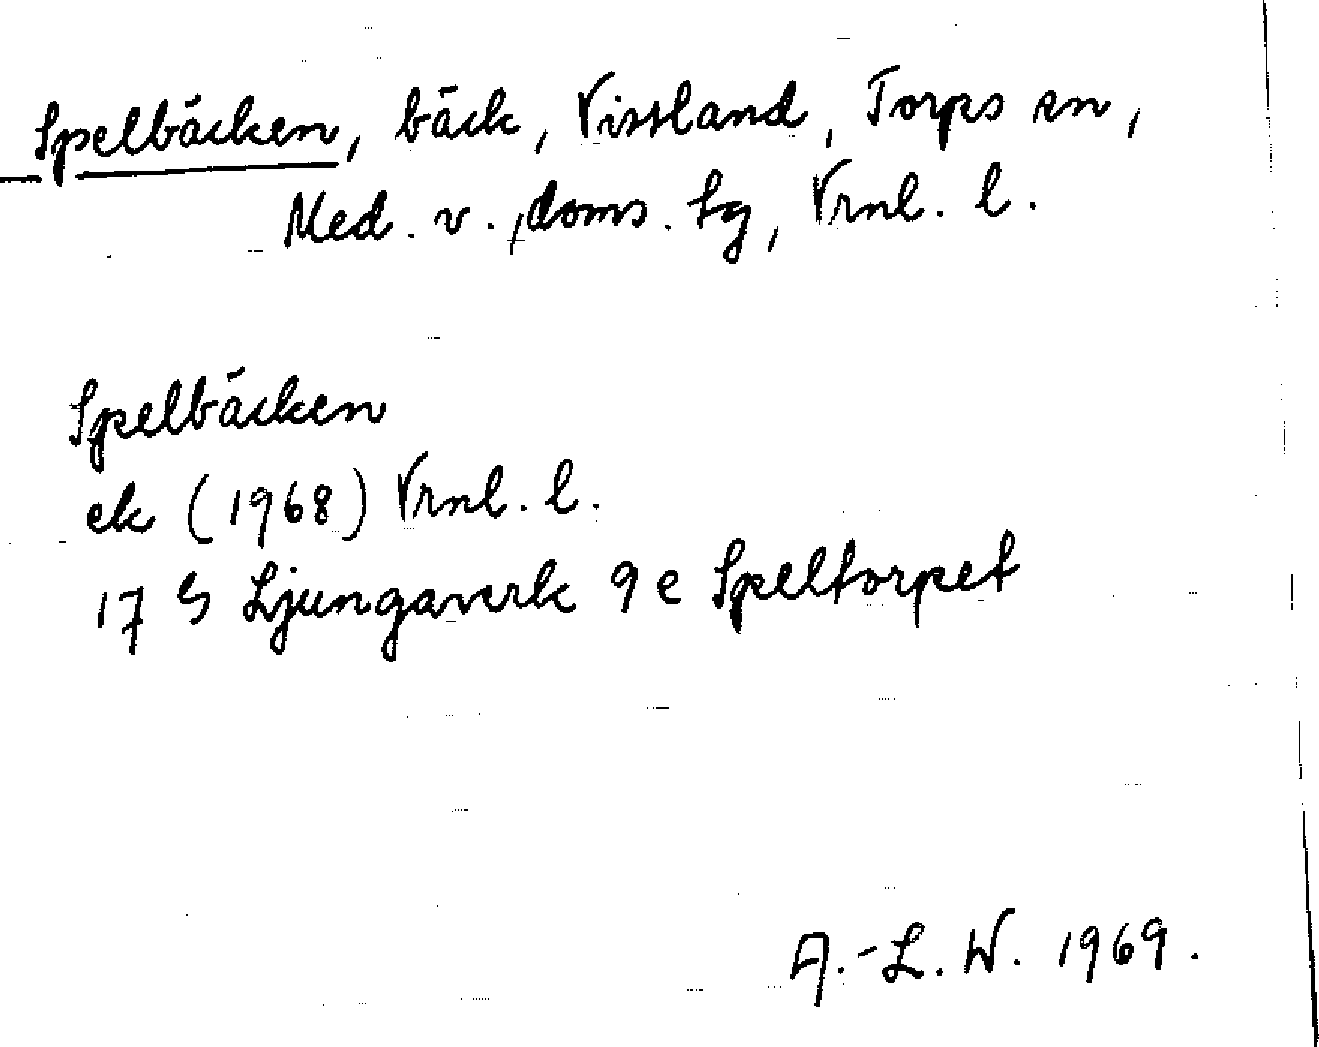 Spelbäcken, bäck, Vissland, Torps sn,
Med. v. doms. tg, Vrnl. l.
Spelbäcken
ek (1968) Vrnl. l.
17 G Ljungaverk 9 e Speltorpet
A.-L. W. 1969.